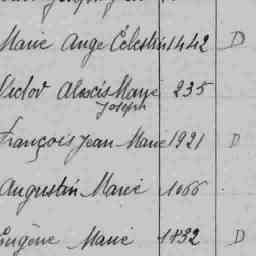 Marie Ange Célestin 1442 D
Victor Alexis Marie 235
Joseph
François Jean Marie 1921 D
Augustin Marie 1066
Eugène Marie 1832 D